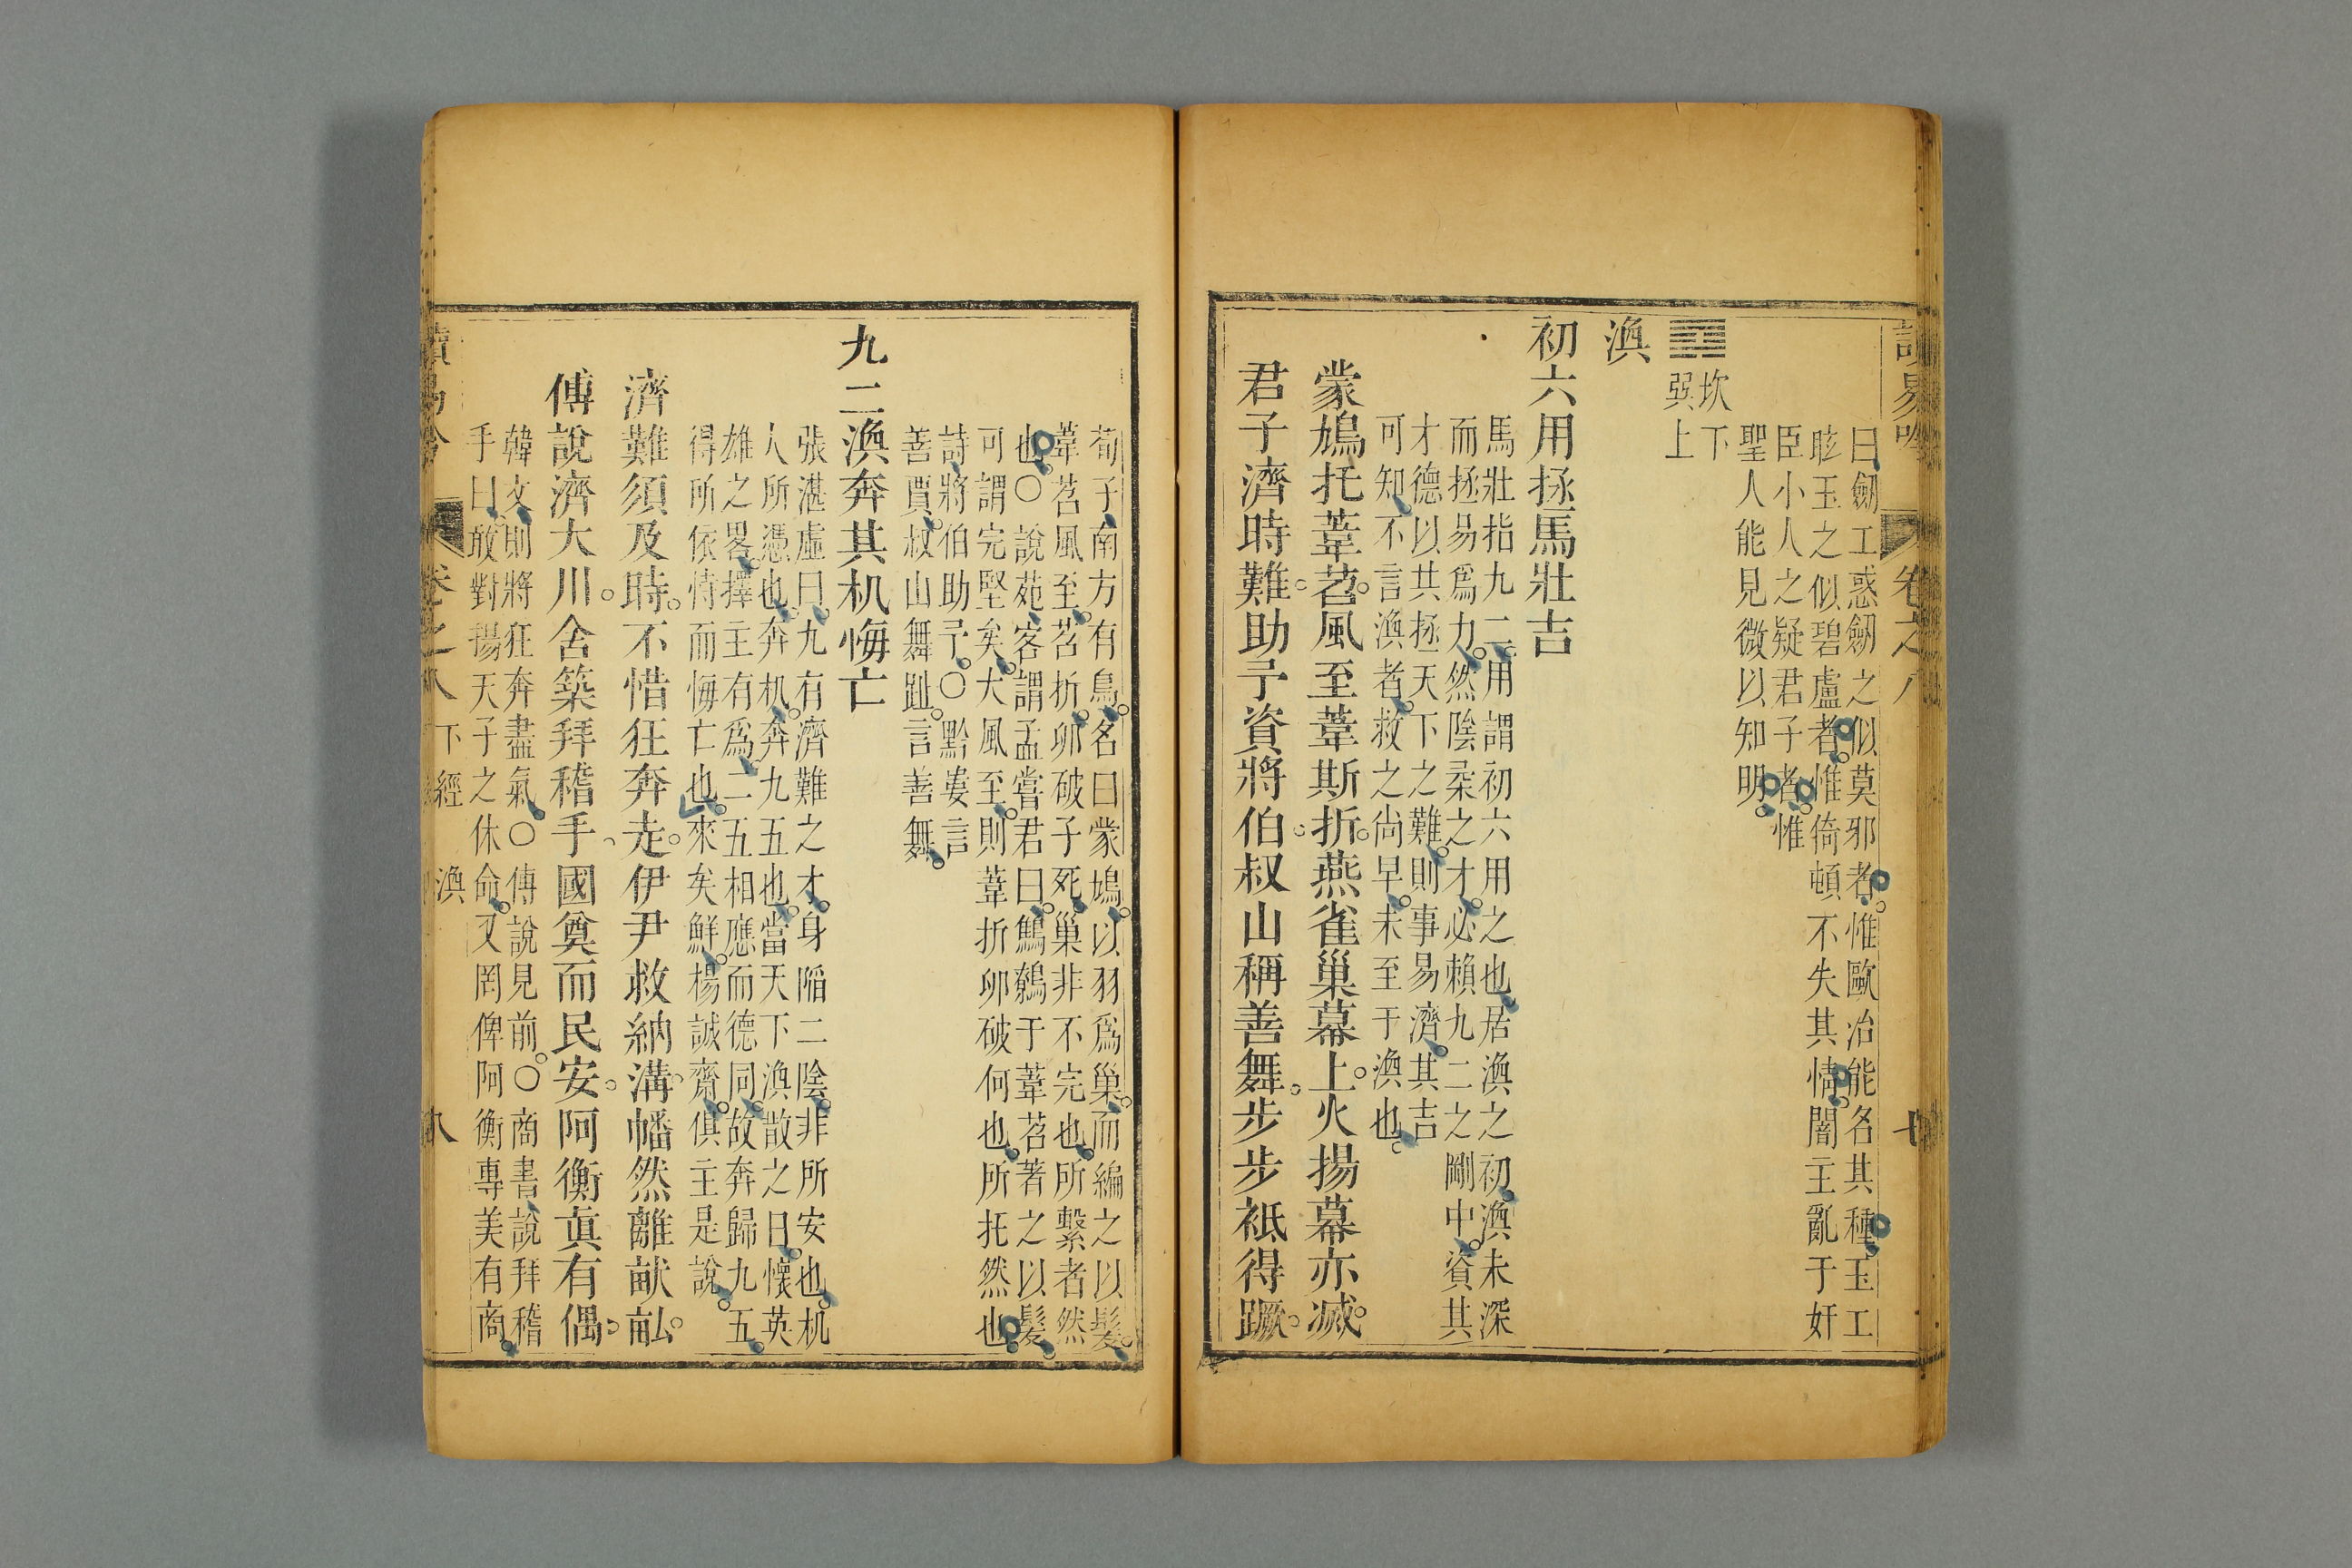 讀易吟
卷之八
七
曰劒工惑劒之似莫邪者惟歐冶能名其種玉工
眩玉之似碧盧者惟倚頓不失其情闇主亂于奸
臣小人之疑君子者惟
聖人能見微以知明
坎下
巽上
渙
初六用拯馬壯吉
馬壯指九二用謂初六用之也居渙之初渙未深
而拯易爲力然陰柔之才必賴九二之剛中資其
才德以共拯天下之難則事易濟其吉
可知不言渙者救之尚早未至于渙也
蒙鳩托葦苕風至葦斯折燕雀巢幕上火揚幕亦滅
君子濟時難助予資將伯叔山稱善舞步步祗得蹶
荀子南方有鳥名曰蒙鳩以羽爲巢而編之以髮
葦苕風至苕折卵破子死巢非不完也所繫者然
也○說苑客謂孟嘗君曰鷦鷯于葦苕著之以髮
可謂完堅矣大風至則葦折卵破何也所托然也
詩將伯助予○黔婁言
善賈叔山舞趾言善舞
九二渙奔其机悔亡
張湛虛曰九有濟難之才身陷二陰非所安也机
人所憑也奔机奔九五也當天下渙散之日懷英
雄之畧擇主有爲二五相應而德同故奔歸九五
得所依恃而悔亡也來矣鮮楊誠齋俱主是說
濟難須及時不惜狂奔走伊尹救納溝幡然離畎畝
傅說濟大川舍築拜稽手國奠而民安阿衡眞有偶
韓文則將狂奔盡氣○傅說見前○商書說拜稽
手曰敢對揚天子之休命又罔俾阿衡專美有商
讀易吟
卷之八
下經
渙
八